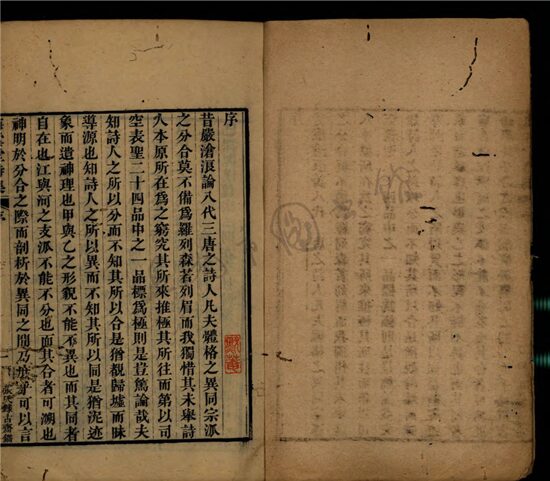 序
昔嚴滄浪論八代三唐之詩人凡夫體格之異同宗派
之分合莫不備爲羅列森若列眉而我獨惜其未舉詩
人本原所在爲之窮究其所來推極其所往而第以司
空表聖二十四品中之一品標爲極則是豈篤論哉夫
知詩人之所以分而不知其所以合是猶觀歸墟而昧
導源也知詩人之所以異而不知其所以同是猶泥迹
象而遺神理也甲與乙之形貌不能不異也而其同者
自在也江與河之支派不能不分也而其合者可溯也
神明於分合之際而剖析於異同之間乃庶乎可以言